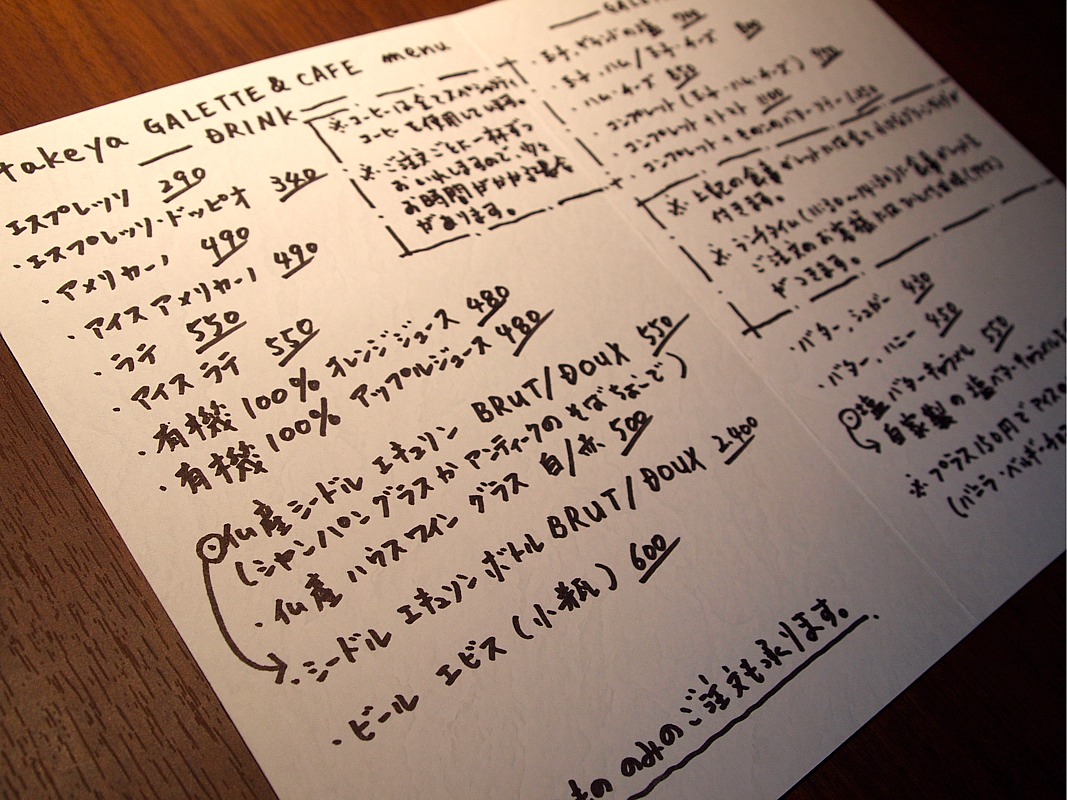 takeya GALETTE & CAFE menu
DRINK
エスプレッソ 290
・エスプレッソ・ドッピオ 340
・アメリカーノ 490
・アイスアメリカーノ 490
・ラテ 550
・アイスラテ 550
・有機100% オレンジジュース 480
・有機100% アップルジュース 480
仏産シードル エキュソン BRUT/DOUX 550
(シャンパングラスか アンティークのそばちょこで)
・仏産 ハウスワイン グラス 白/赤 500
・シードル エキュソン ボトル BRUT/DOUX 2.400
・ビール エビス (小瓶) 600
のみのご注文も承ります。
※コーヒーは全てスペシャルティ
コーヒーを使用してます。
※ご注文ごとに一杯ずつ
おいれしますので、少々
お時間がかかる場合
があります。
・玉子、
・玉子、ハム/玉子・チーズ
・ハム・チーズ 850
・コンプレット (玉子・ハム・チーズ)
・コンプレット+トマト 1100
・コンプレット+きのこのバターソテー
※上記の食事ガレットには
付きます。
※ランチタイム(11:30〜14:30)に食事ガレットを
ご注文のお客様には
がつきます。
・バター、シュガー 430
・バター、ハニー 450
塩バターキャラメル 550
自家製の塩バターキャラメル
※プラス150円でアイス
(バニラ・ベルギーチョコ